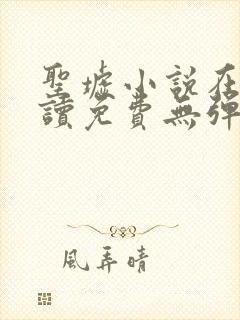 聖墟小說在
讀免費無彈
風弄晴